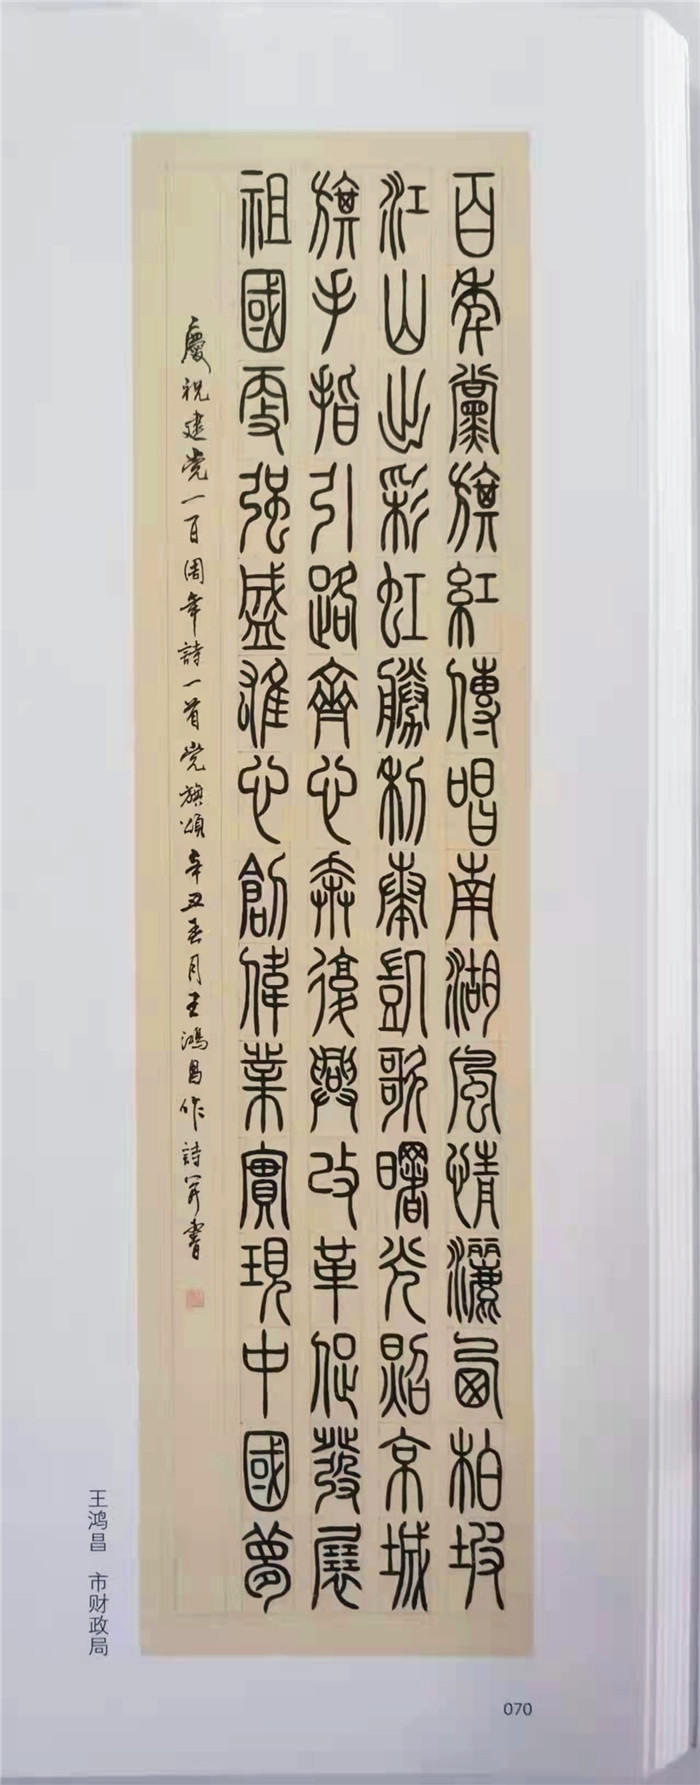 百年黨旗紅傳唱南湖風情灑西柏坡
江山出彩虹勝利奏凱歌曙光照京城
旗手指引路齊心奔復興改革促發展
祖國更强盛雄心創偉業實現中國夢
慶祝建党一百周年詩一首党旗頌辛丑春月王鴻昌作詩并書
王鸿昌 市财政局
070